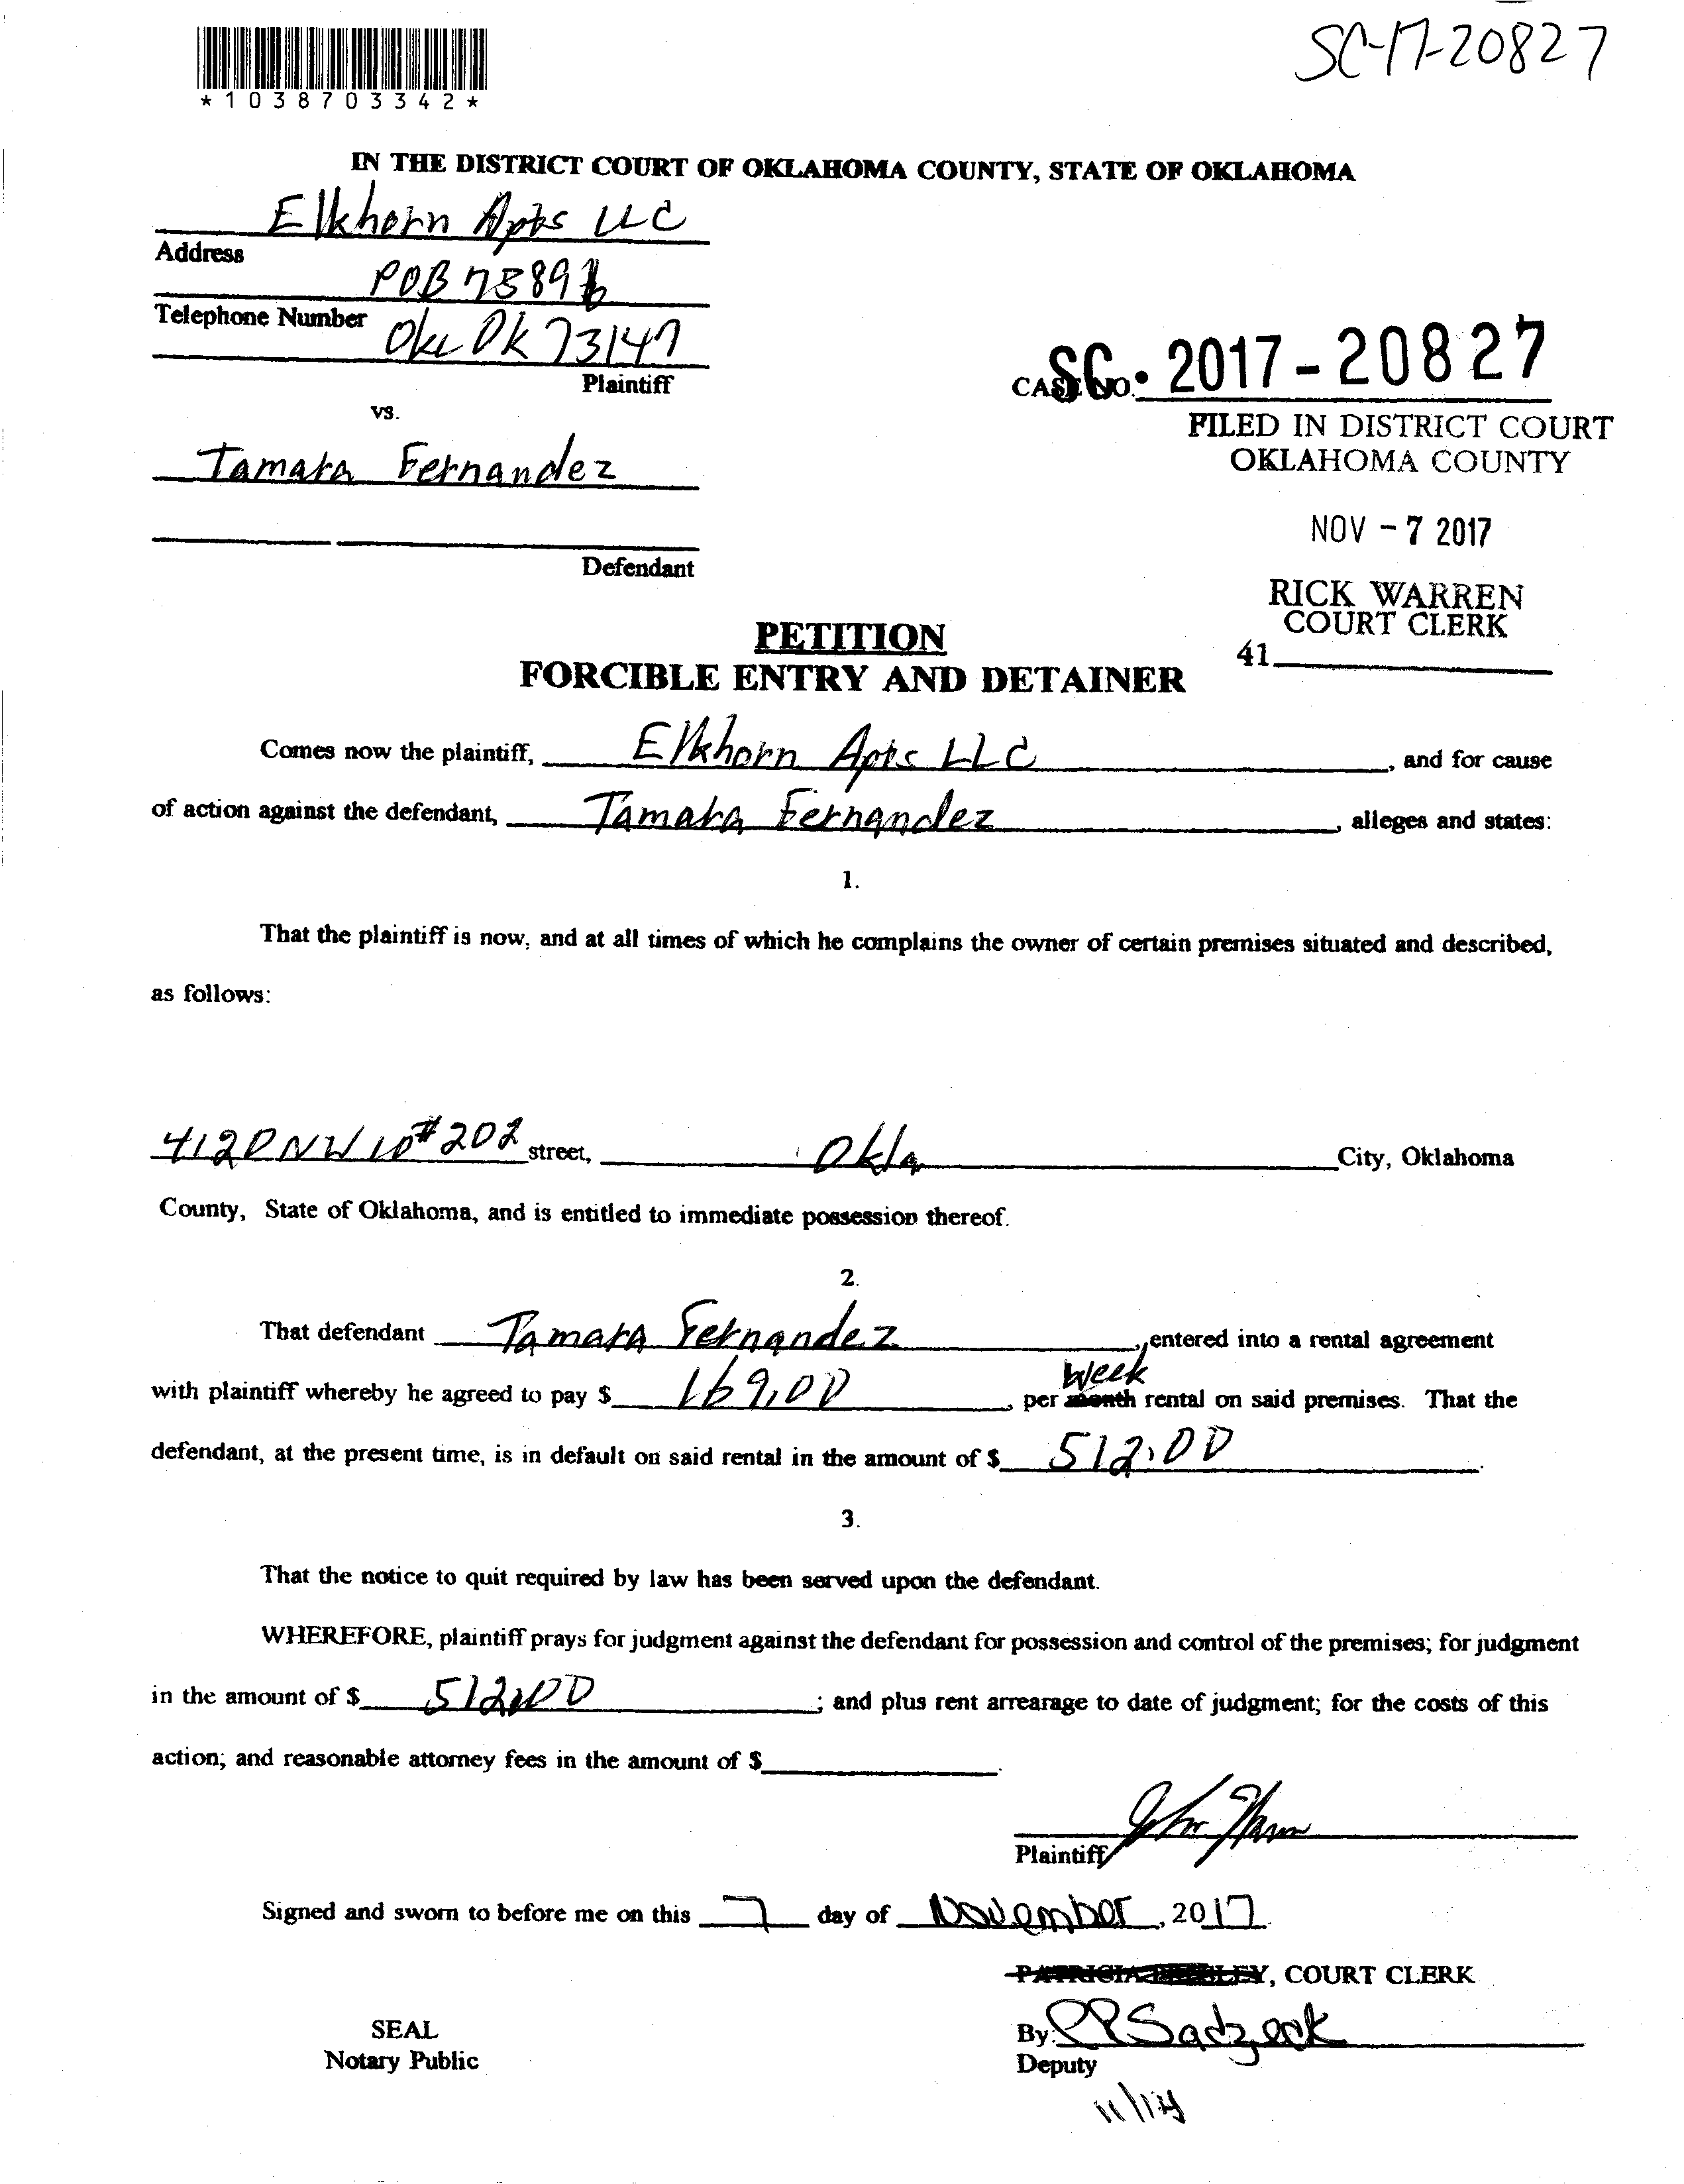 SC-17-20827
*1038703342*
IN THE DISTRICT COURT OF OKLAHOMA COUNTY, STATE OF OKLAHOMA
Elkhorn Apts LLC
Address
POB
Telephone Number
Okc Ok 73147
Plaintiff
CASE NO. SC • 2017-20827
vs.
FILED IN DISTRICT COURT
OKLAHOMA COUNTY
Tamara Fernandez
NOV - 7 2017
Defendant
RICK WARREN
COURT CLERK
41
PETITION
FORCIBLE ENTRY AND DETAINER
Comes now the plaintiff, Elkhorn Apts LLC, and for cause
of action against the defendant, Tamara Fernandez, alleges and states:
1.
That the plaintiff is now, and at all times of which he complains the owner of certain premises situated and described,
as follows:
4120 NW 10 #202 street, Okla City, Oklahoma
County, State of Oklahoma, and is entitled to immediate possession thereof.
2.
That defendant Tamara Fernandez, entered into a rental agreement
Week
with plaintiff whereby he agreed to pay $ 169.00, per month rental on said premises. That the
defendant, at the present time, is in default on said rental in the amount of $ 512.00.
3.
That the notice to quit required by law has been served upon the defendant.
WHEREFORE, plaintiff prays for judgment against the defendant for possession and control of the premises; for judgment
in the amount of $ 512.00; and plus rent arrearage to date of judgment; for the costs of this
action; and reasonable attorney fees in the amount of $.
Plaintiff
Signed and sworn to before me on this 7 day of November, 2017.
PATRICIA PRESLEY, COURT CLERK
SEAL
By:
Notary Public
Deputy